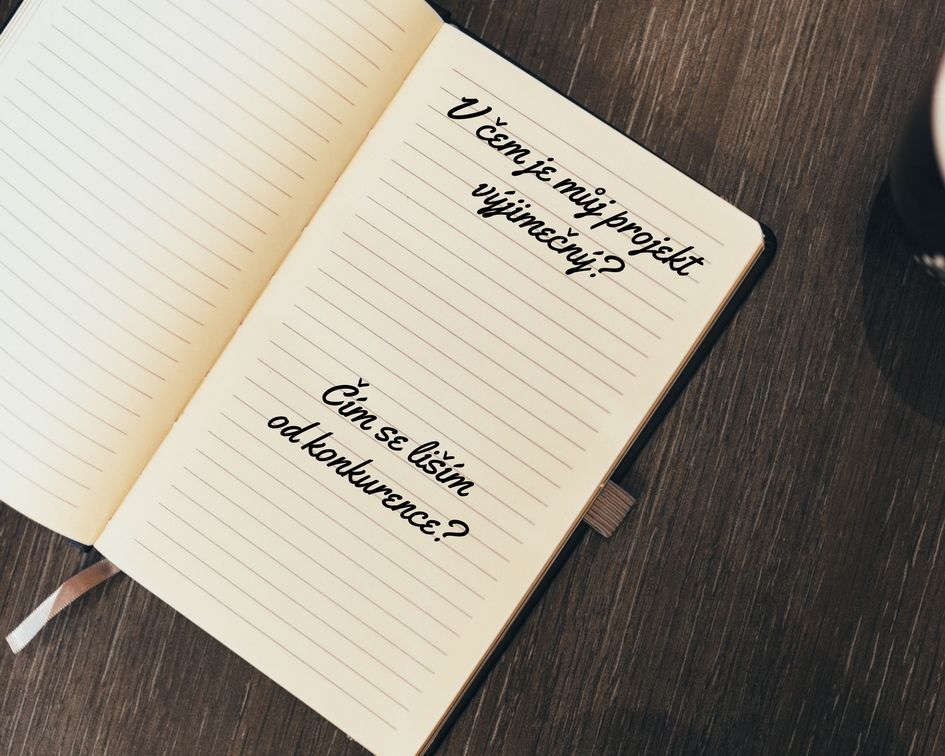 V čem je můj projekt
výjimečný?
Čím se liším
od konkurence?